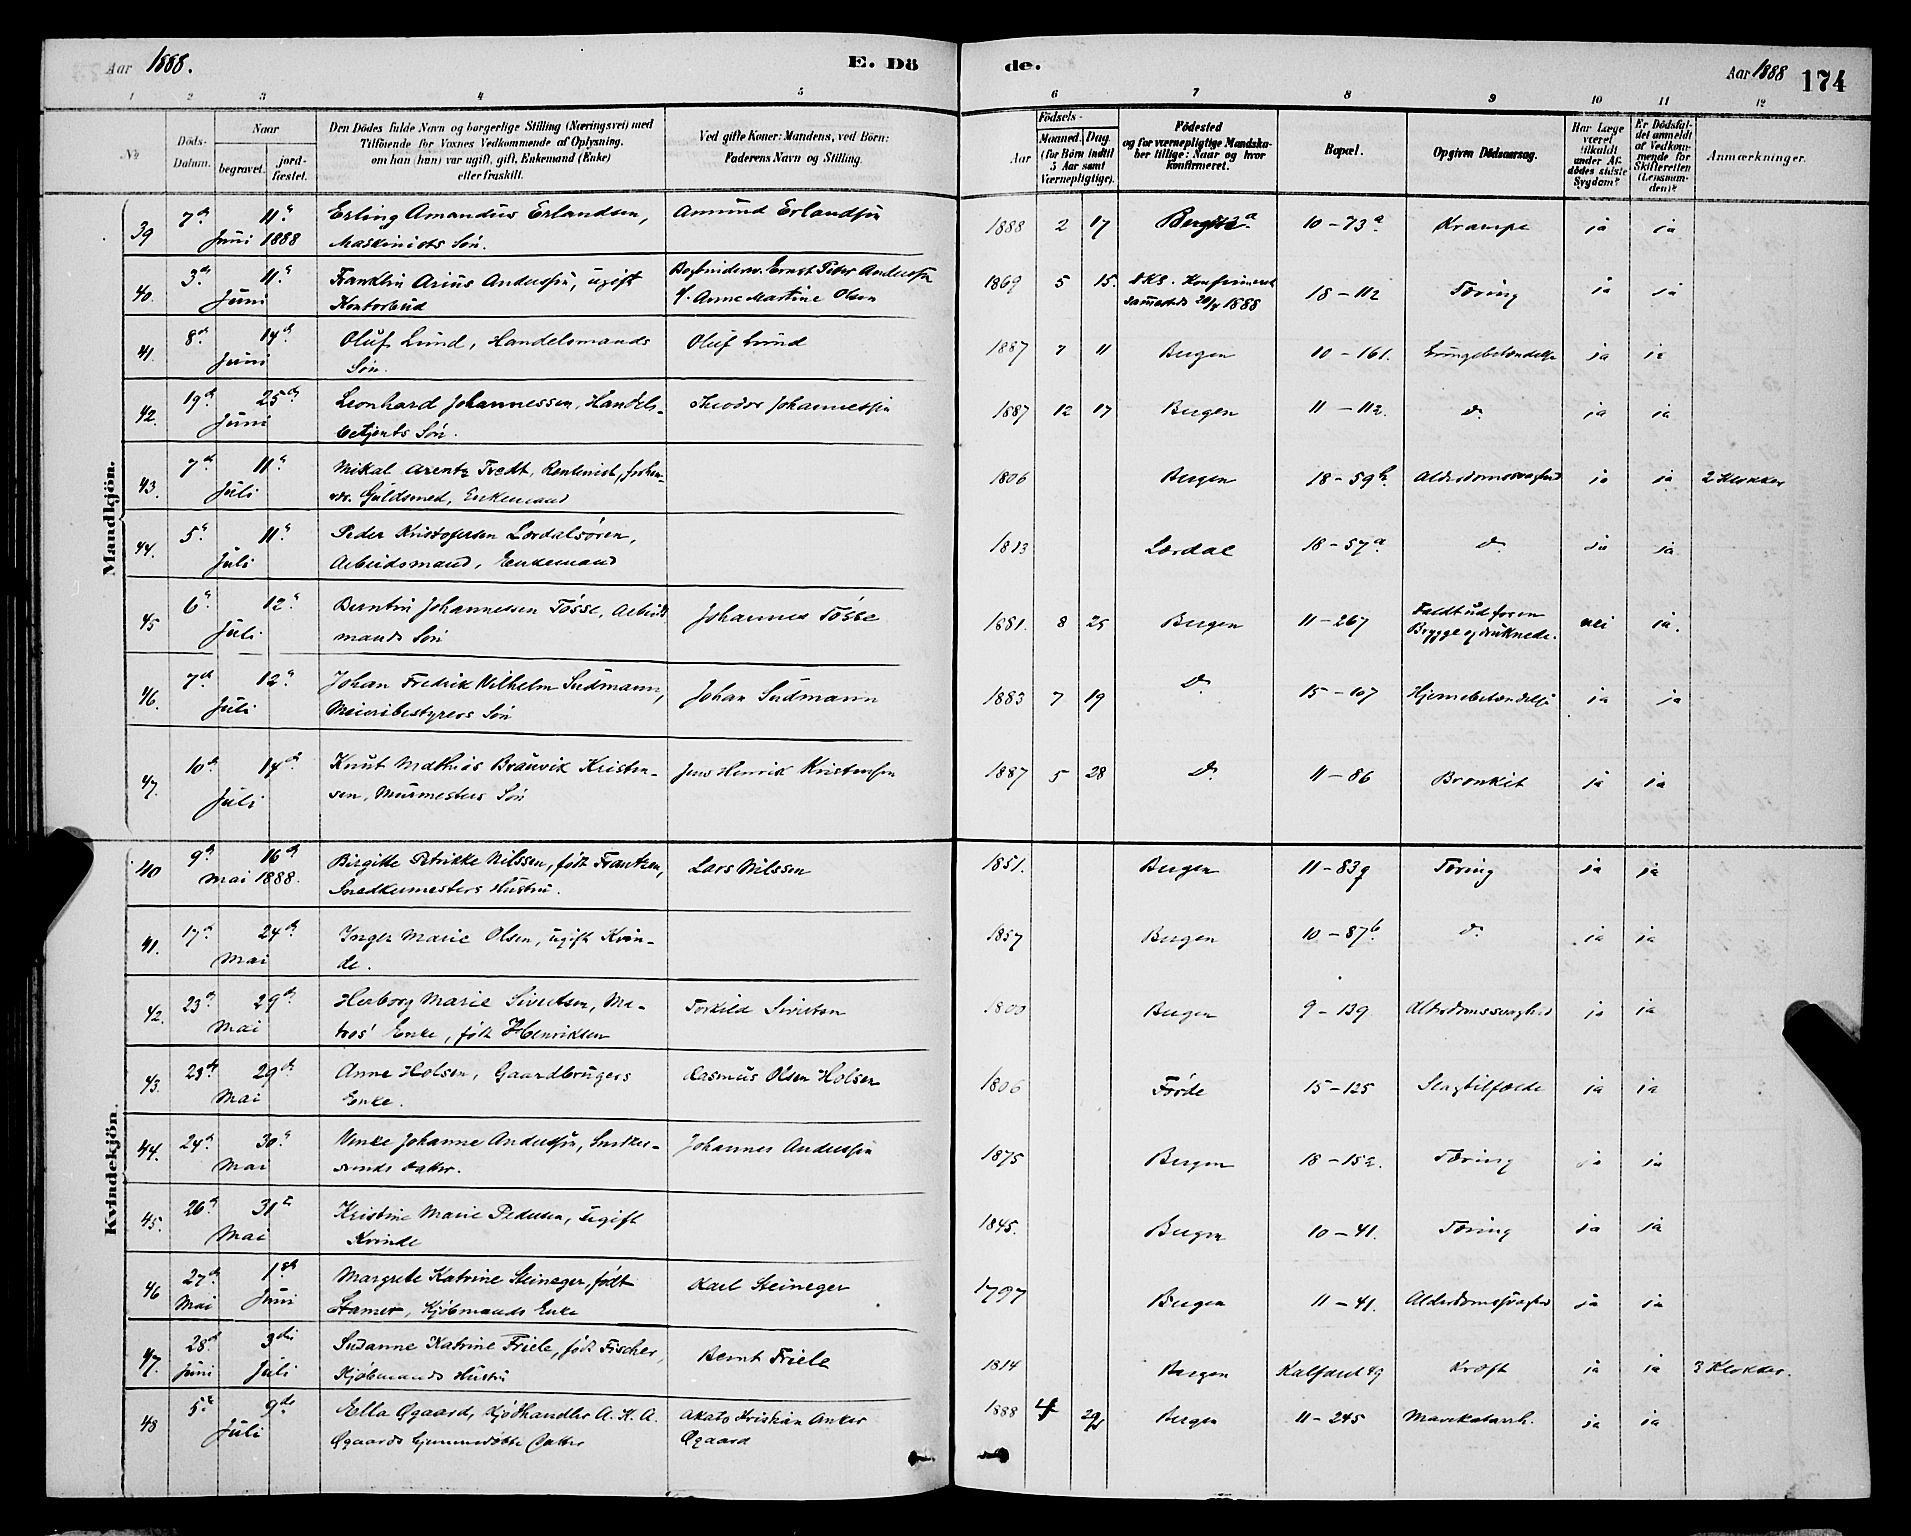 Aar 1888.
E. Dö
de.
Aar 1888
174
1 2 3 4 5 6 7 8 9 10 11 12
No
Döds-Datum.
Naar
begravet.
jord-fæstet.
Den Dödes fulde Navn og borgerlige Stilling (Næringsvei) med
Tilföiende for Voxnes Vedkommende af Oplysning,
om han (hun) var ugift, gift, Enkemand (Enke)
eller fraskilt.
Ved gifte Koner: Mandens, ved Börn:
Faderens Navn og Stilling.
Födsels-
Aar
Maaned. Dag.
(for Börn indtil
5 Aar samt
Værnepligtige).
Födested
og for værnepligtige Mandska-
ber tillige: Naar og hvor
konfirmeret.
Bopæl.
Opgiven Dödsaarsag.
Har Læge
været
tilkaldt
under Af-
dödes sidste
Sygdom?
Er Dödsfal-
det anmeldt
af Vedkom-
mende for
Skifteretten
(Lensman-
den)?
Anmærkninger.
Mandkjön.
39 7de 11te Erling Amandus Erlandsen, Amund Erlandsen 1888 2 17 Bergen 10-73a Krampe ja ja
Juni 1888 Maskinists Sön.
40. 3de 11te Franklin Arius Andersen, ugift Bogbindersv. Ernst Peter Andersen 1869 5 15. Konfirmeret 18-112 Tæring ja ja
Juni Kontorbud Anne Martine Olsen 1888
41. 8de 14de Oluf Lund, Handelsmands Oluf Lund 1887 7 11 Bergen 10-161. Lungebetændelse ja ja
Juni Sön.
42. 19de 25de Leonhard Johannessen, Handels- Theodor Johannessen 1887 12 17 Bergen 11-112. do ja ja
Juni betjents Sön.
43. 7de 11te Mikal Arentz Tvedt, Rentenist, forhen- 1806 Bergen 18-59b Alderdomssvaghed ja ja 2 Klokker
Juli Guldsmed, Enkemand
44. 5te 11te Peder Kristofersen Lærdalsören, 1813 Lærdal 18-57a do ja ja
Juli Arbeidsmand, Enkemand
45 6te 12te Berntin Johannessen Tösse, Arbeids Johannes Tösse 1881. 8 25 Bergen 11-267 Faldt ud for en nei ja.
Juli mands Sön Brygge og druknede.
46. 7de 12te Johan Fredrik Vilhelm Sudmann, Johan Sudmann 1883 7 19 do 15-107 Hjernebetændelse ja ja
Juli Meieribestyrers Sön
47. 10de 14de Knut Mathias Brauvik Kristen- Jens Henrik Kristensen 1887 5 28 do 11-86 Bronkit ja ja
Juli sen, Murmesters Sön
Kvindekjön.
40 9de 16de Birgitte Petrikke Nilssen, födt Frantzen, Lars Nilssen 1851. Bergen 11-83 Tæring ja ja
Mai 1888. Snedkermesters Hustru.
41. 17de 24de Inger Marie Olsen, ugift Kvin- 1857 Bergen 10-87b do ja ja
Mai de.
42. 23de 29de Herborg Marie Sivertsen, Ma- Torkild Sivertsen 1800 Bergen 9-139 Alderdomssvaghed ja ja
Mai tros' Enke, födt Henriksen
43. 23de 29de Anne Holsen, Gaardbrugers Rasmus Olsen Holsen 1806 Förde 15-125 Slagtilfælde ja ja
Mai Enke.
44. 24de 30te Vinke Johanne Andersen, Snedker- Johannes Andersen 1875 Bergen 18-152. Tæring ja ja
Mai svends Datter.
45. 26de 31te Kristine Marie Pedersen, ugift 1845. Bergen 10-41. Tæring ja ja
Mai Kvinde
46 27de 1ste Margrete Katrine Steineger, födt Karl Steineger 1797 Bergen 11-41. Alderdomssvaghed ja ja
Mai Juni Stamer, Kjöbmands Enke
47. 28de 3die Susanne Katrine Friele, födt Fischer, Bernt Friele 1814 Bergen Kalfaret 49 Kræft ja ja 3 Klokker.
Juni Juli Kjöbmands Hustru
48 5te 9de Ella Øgaard, Kjödhandler A. K. A. Akato Kristian Anker 1888 4 29 Bergen 11-245 Mavekatarrh. ja ja
Juli Øgaards hjemmedöbte Datter Øgaard